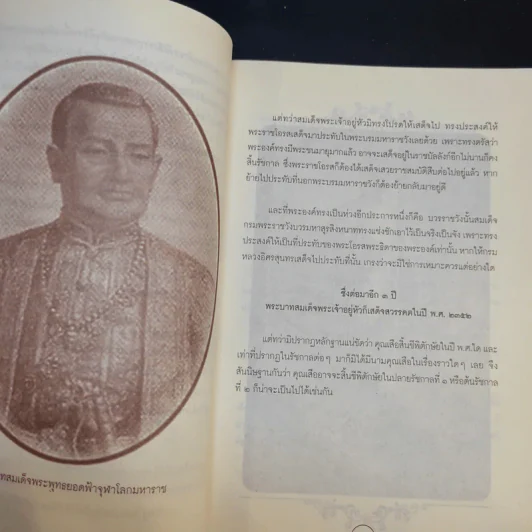 ทสมเด็จพระพุทธยอดฟ้าจุฬาโลกมหาราช
แต่ทว่าสมเด็จพระเจ้าอยู่หัวมิทรงโปรดให้เสด็จไป ทรงประสงค์ให้
พระราชโอรสเสด็จมาประทับในพระบรมมหาราชวังเลยด้วย เพราะทรงตรัสว่า
พระองค์ทรงมีพระชนมายุมากแล้ว อาจจะเสด็จอยู่ในราชบัลลังก์อีกไม่นานก็คง
สิ้นรัชกาล ซึ่งพระราชโอรสก็ต้องได้เสด็จเสวยราชสมบัติสืบต่อไปอยู่แล้ว หาก
ย้ายไปประทับที่นอกพระบรมมหาราชวังก็ต้องย้ายกลับมาอยู่ดี
และที่พระองค์ทรงเป็นห่วงอีกประการหนึ่งก็คือ บวรราชวังนั้นสมเด็จ
กรมพระราชวังบวรมหาสุรสิงหนาททรงแช่งชักเอาไว้เป็นจริงเป็นจัง เพราะทรง
ประสงค์ให้เป็นที่ประทับของพระโอรสพระธิดาของพระองค์เท่านั้น หากให้กรม
หลวงอิศรสุนทรเสด็จไปประทับที่นั้น เกรงว่าจะมิใช่การเหมาะควรแต่อย่างใด
ซึ่งต่อมาอีก ๓ ปี
พระบาทสมเด็จพระเจ้าอยู่หัวก็เสด็จสวรรคตในปี พ.ศ. ๒๓๕๒
แต่ทว่ามิปรากฏหลักฐานแน่ชัดว่า คุณเสือสิ้นชีพิตักษัยในปี พ.ศ.ใด และ
เท่าที่ปรากฏในรัชกาลต่อๆ มาก็มิได้มีนามคุณเสือในเรื่องราวใดๆ เลย จึง
สันนิษฐานกันว่า คุณเสืออาจจะสิ้นชีพิตักษัยในปลายรัชกาลที่ ๑ หรือต้นรัชกาล
ที่ ๒ ก็น่าจะเป็นไปได้เช่นกัน